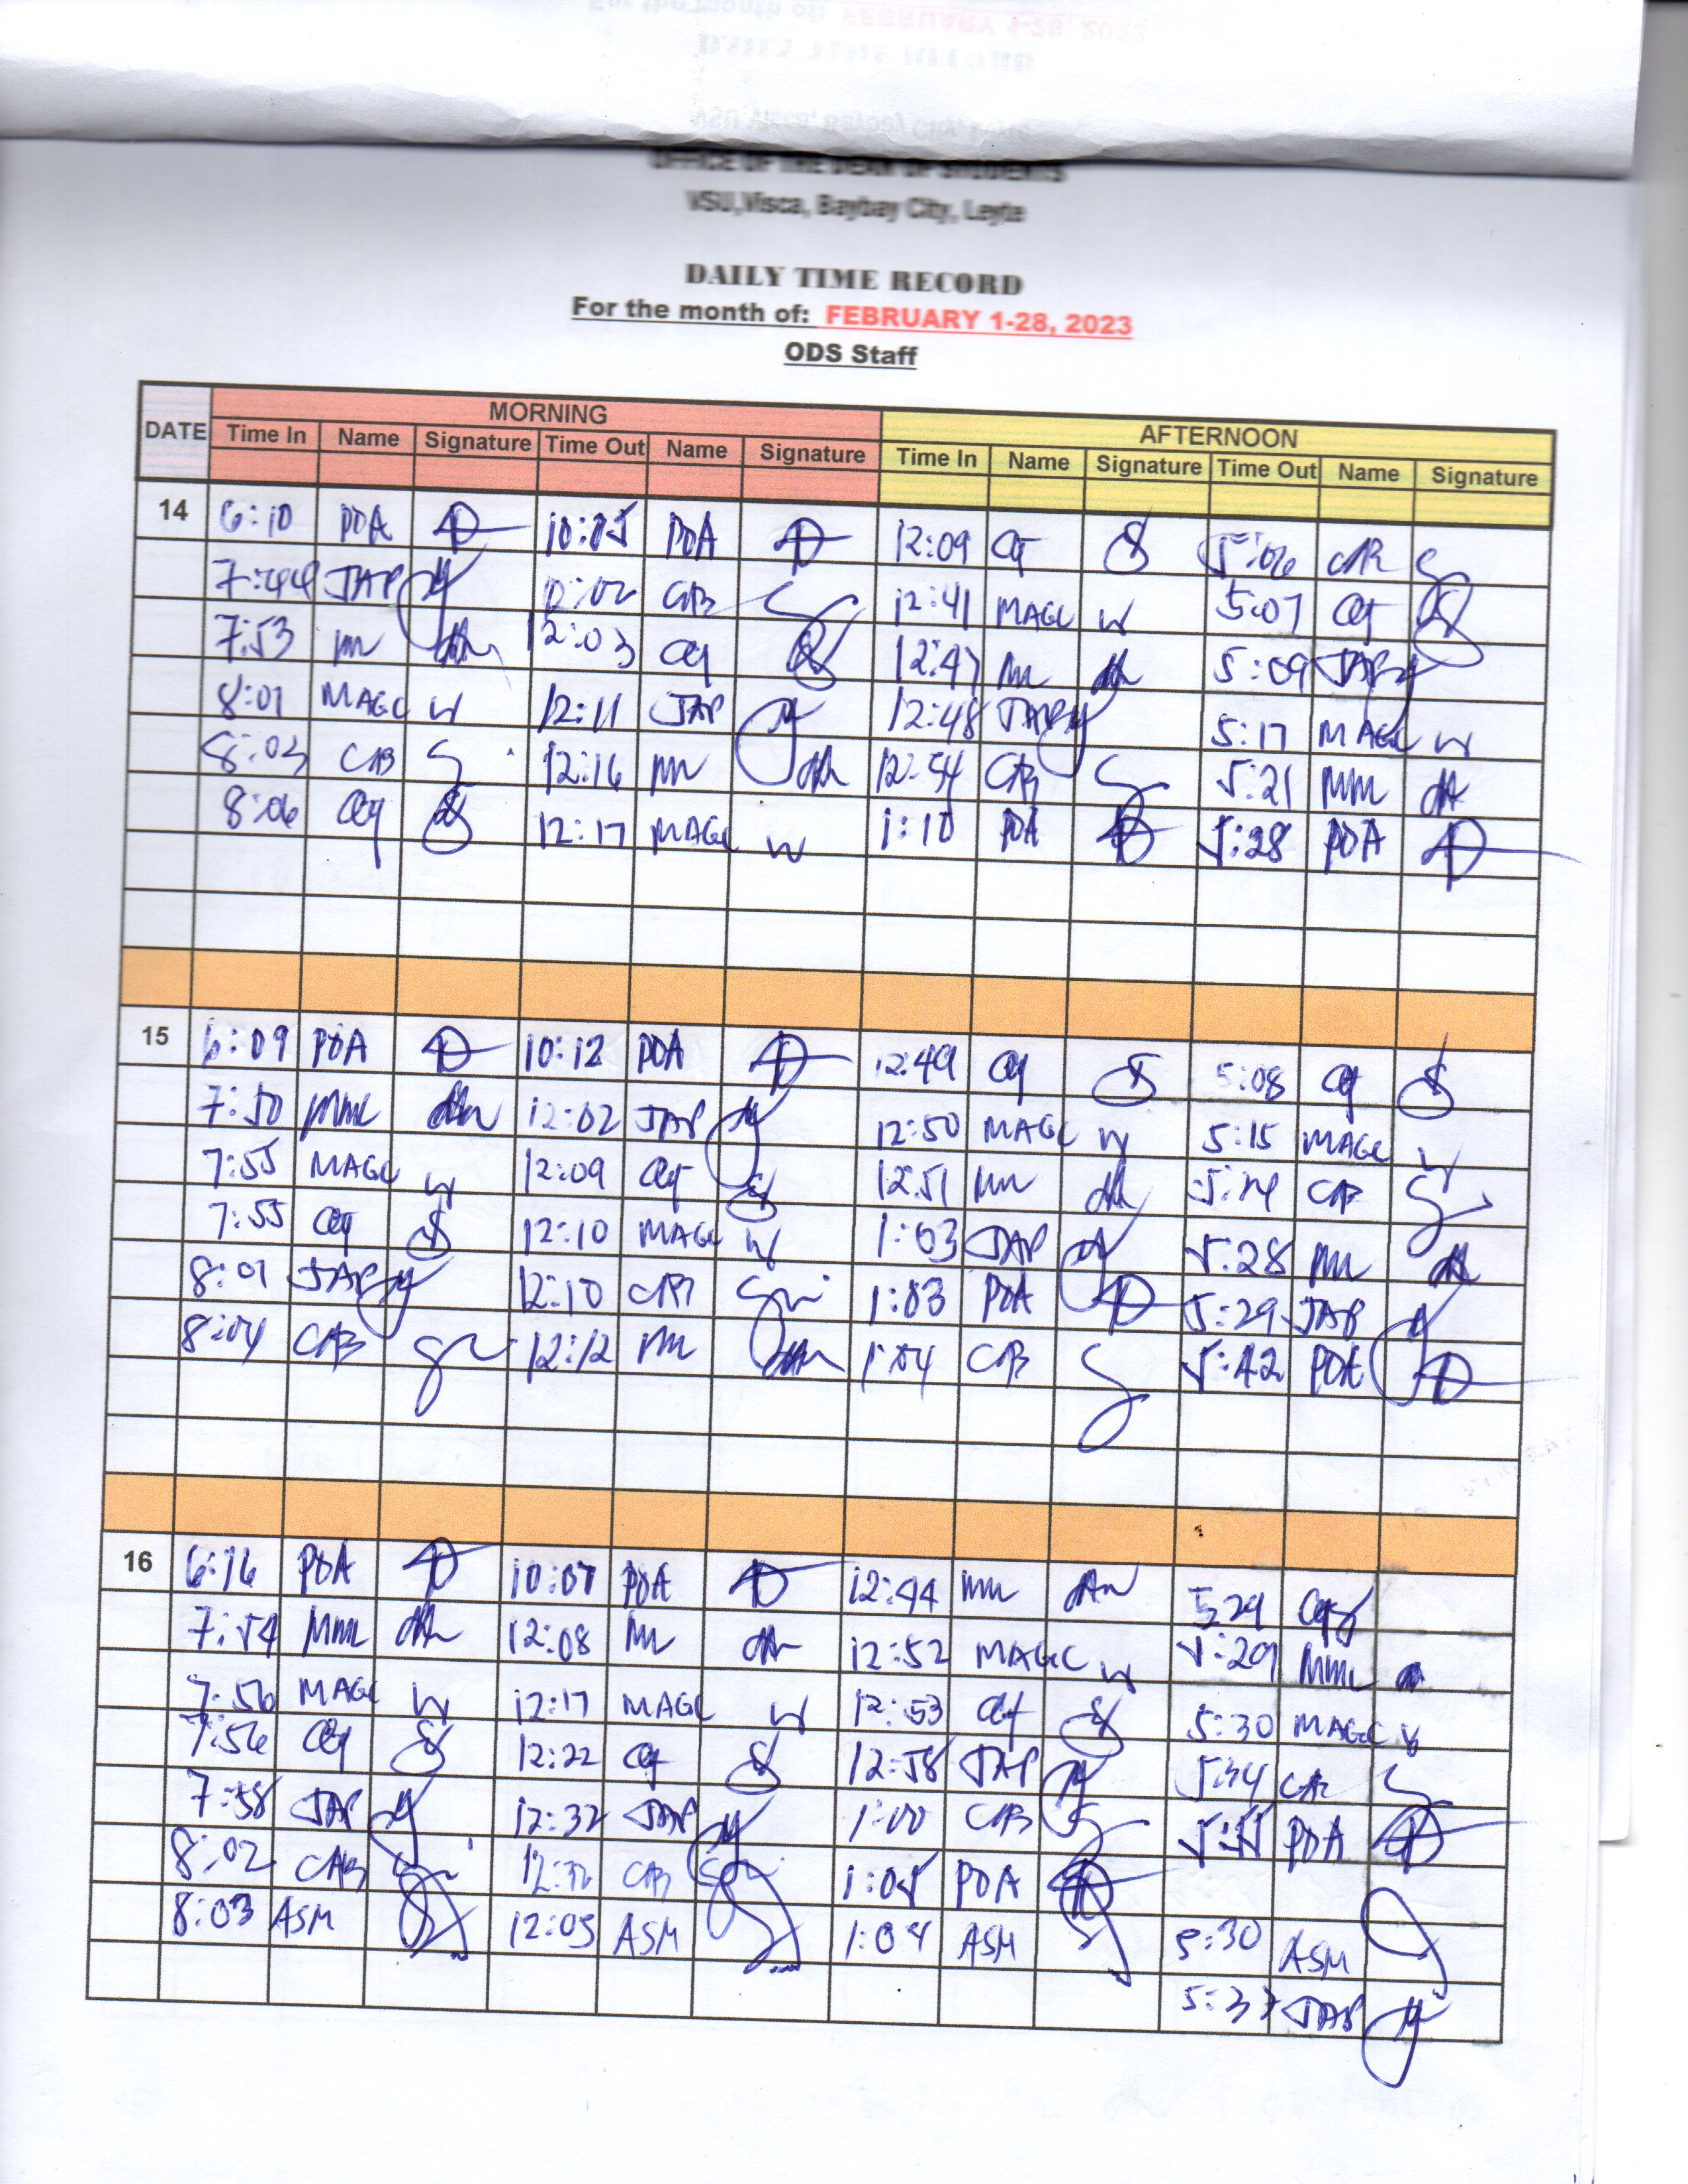 OFFICE OF THE DEAN OF STUDENTS
VSU,Visca, Baybay City, Leyte
DAILY TIME RECORD
For the month of: FEBRUARY 1-28, 2023
ODS Staff
MORNING AFTERNOON
DATE Time In Name Signature Time Out Name Signature Time In Name Signature Time Out Name Signature
14 6:10 PDA PDA 12:09
7:44 JAP CAB 12:41 MAGC 5:07
7:53 12:03 12:47 5:09 JAP
8:01 MAGC 12:11 JAP 12:48 JAP 5:17 MAGC
8:03 CAB 12:16 12:54 CAB 5:21 MM
8:06 12:17 MAGC 1:10 PDA 5:28 PDA
15 6:09 PDA 10:12 PDA 12:49 5:08
7:50 MML 12:02 JAP 12:50 MAGC 5:15 MAGC
7:55 MAGC 12:09 12:51
7:55 12:10 MAGC 1:03 JAP 5:28
8:01 JAP 12:10 CAB 1:03 PDA 5:29 JAP
8:04 CAB 12:12 1:04 CAB 5:42 PDA
16 6:16 PDA 10:07 PDA 12:44 5:29
7:54 MML 12:08 12:52 MAGC 5:29 MML
7:56 MAGC 12:17 MAGC 12:53 5:30 MAGC
7:56 12:22 12:58 JAP 5:34
7:58 JAP 12:32 JAP 1:00 CAB PDA
8:02 CAB 12:32 CAB PDA
8:03 ASM 12:05 ASM 1:04 ASM 5:30 ASM
JAP